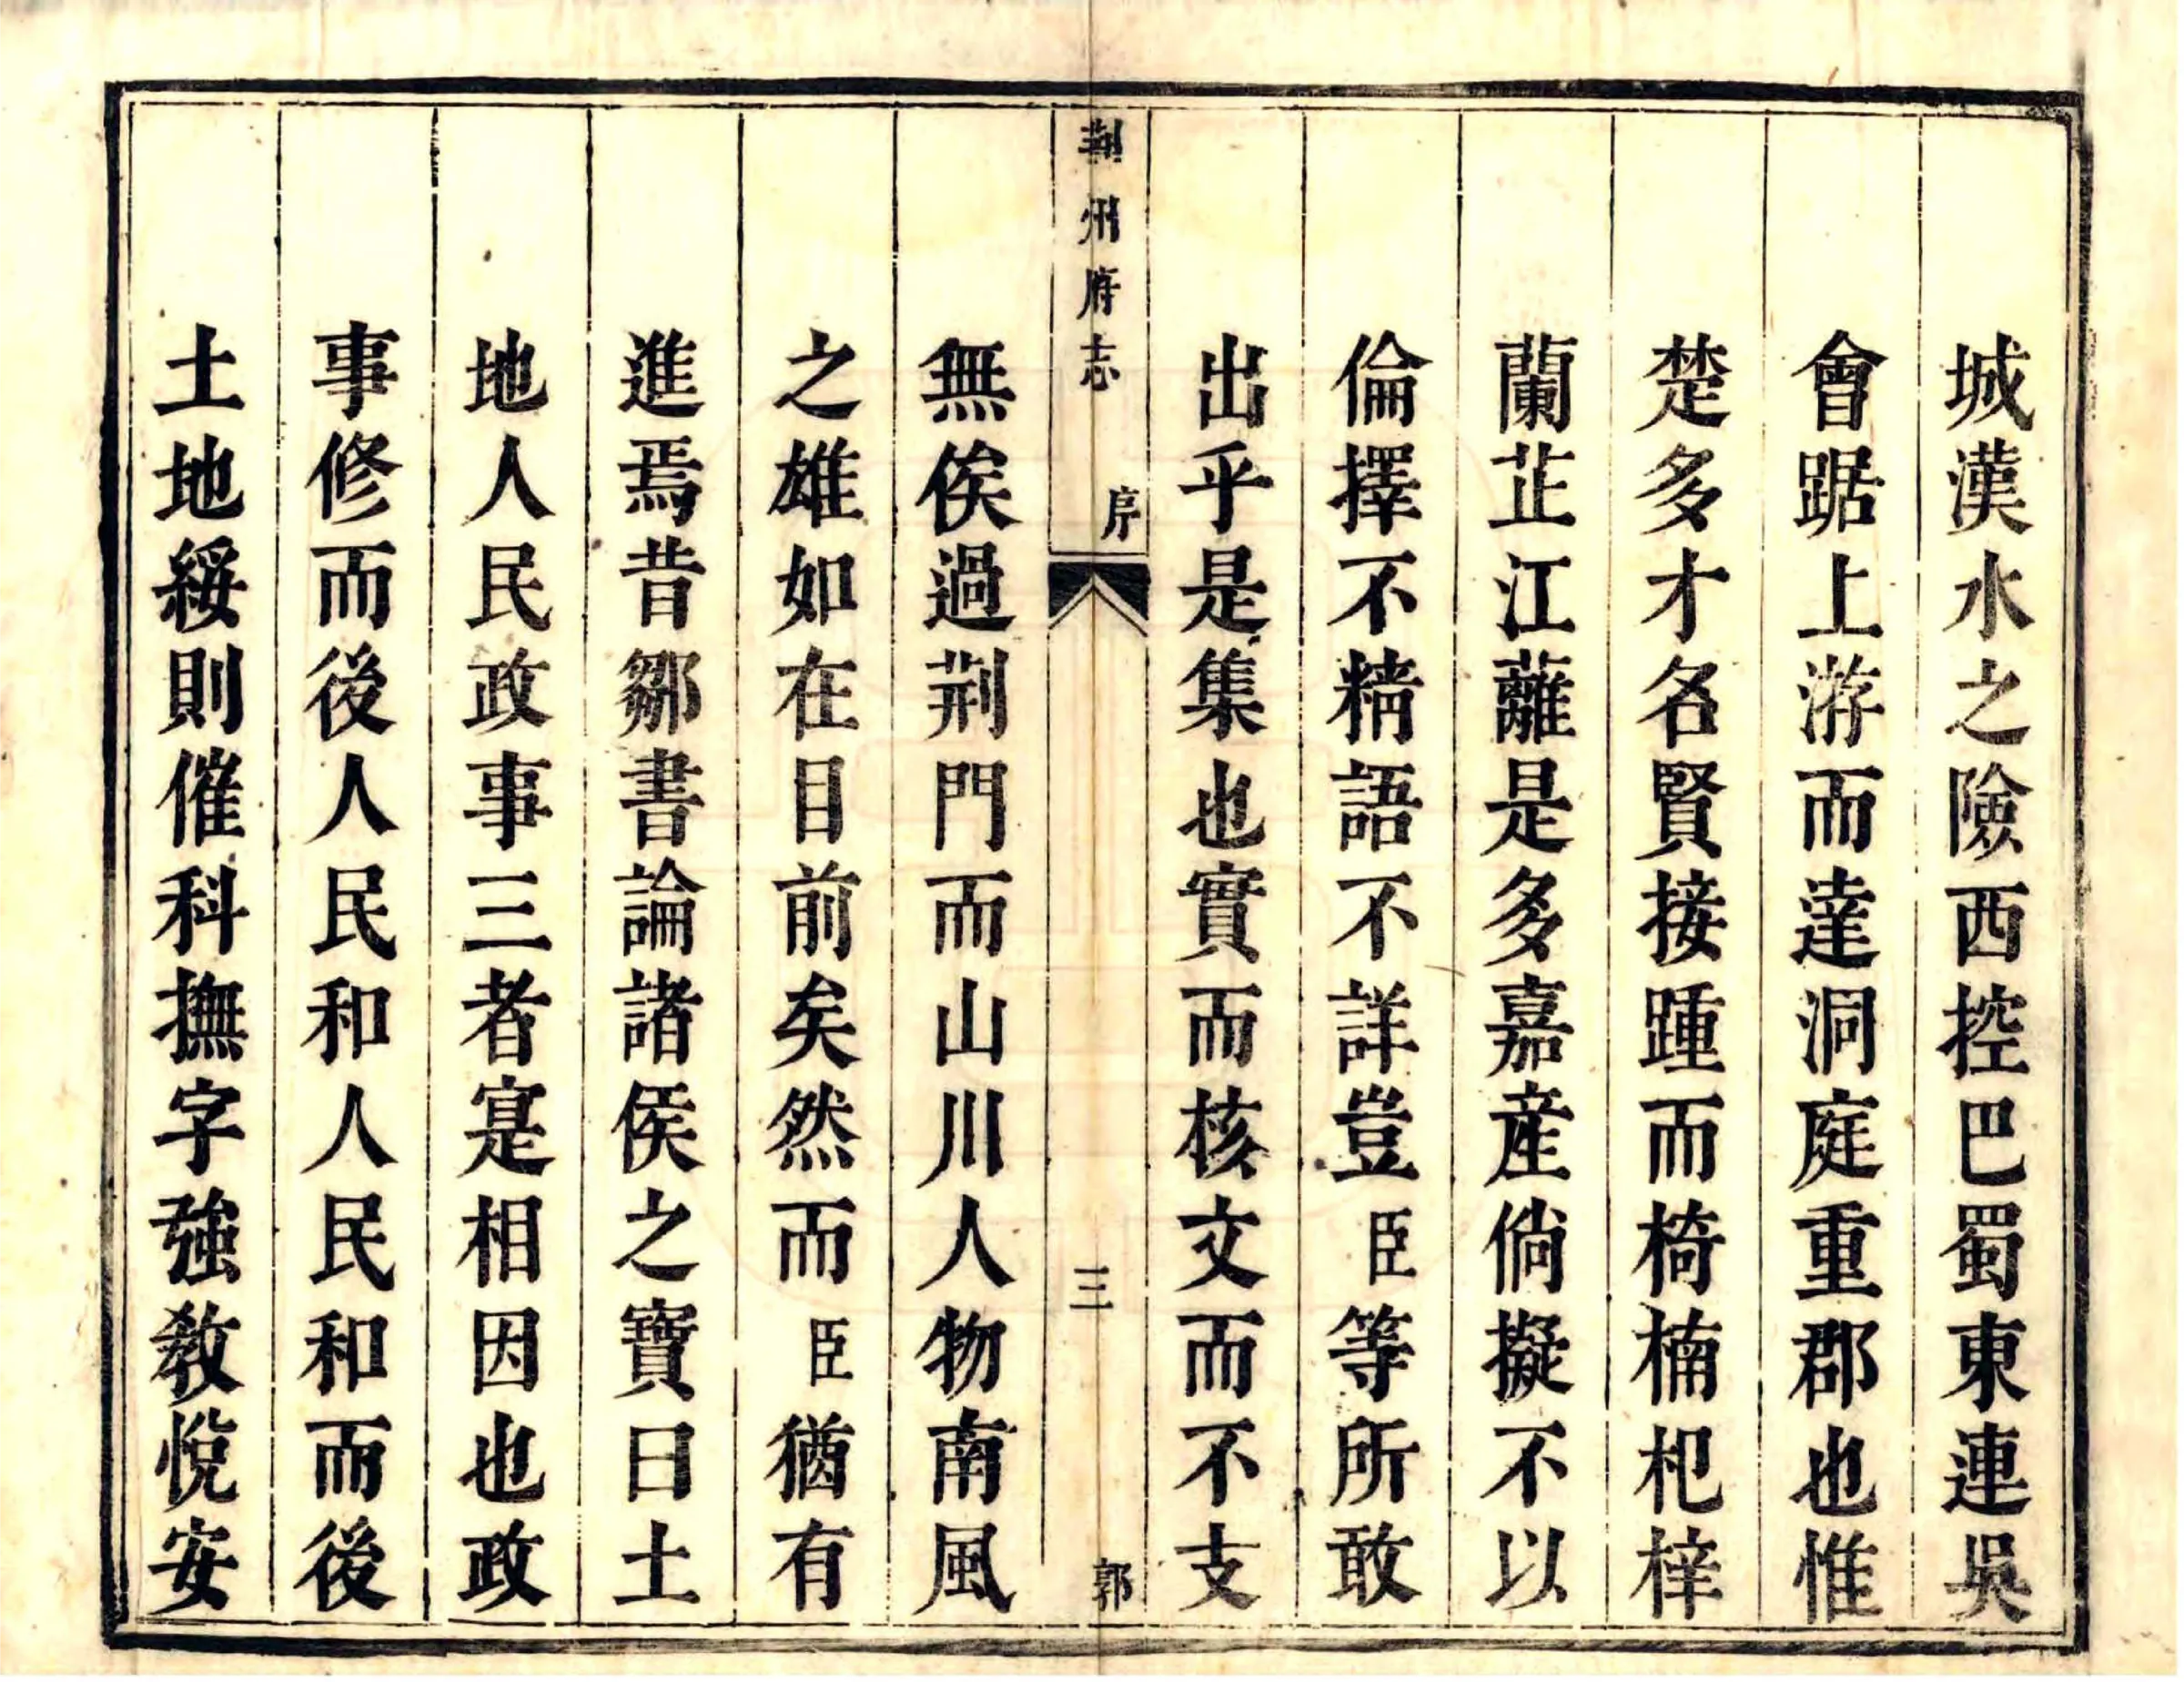 城漢水之險西控巴蜀東連吳
會踞上游而達洞庭重郡也惟
楚多才名賢接踵而椅楠杞梓
蘭芷江蘺是多嘉產倘擬不以
倫擇不精語不詳豈臣等所敢
出乎是集也實而核文而不支
荆州府志 序 三 郭
無俟過荆門而山川人物南風
之雄如在目前矣然而臣猶有
進焉昔鄒書論諸侯之寶曰土
地人民政事三者寔相因也政
事修而後人民和人民和而後
土地綏則催科撫字強教悅安